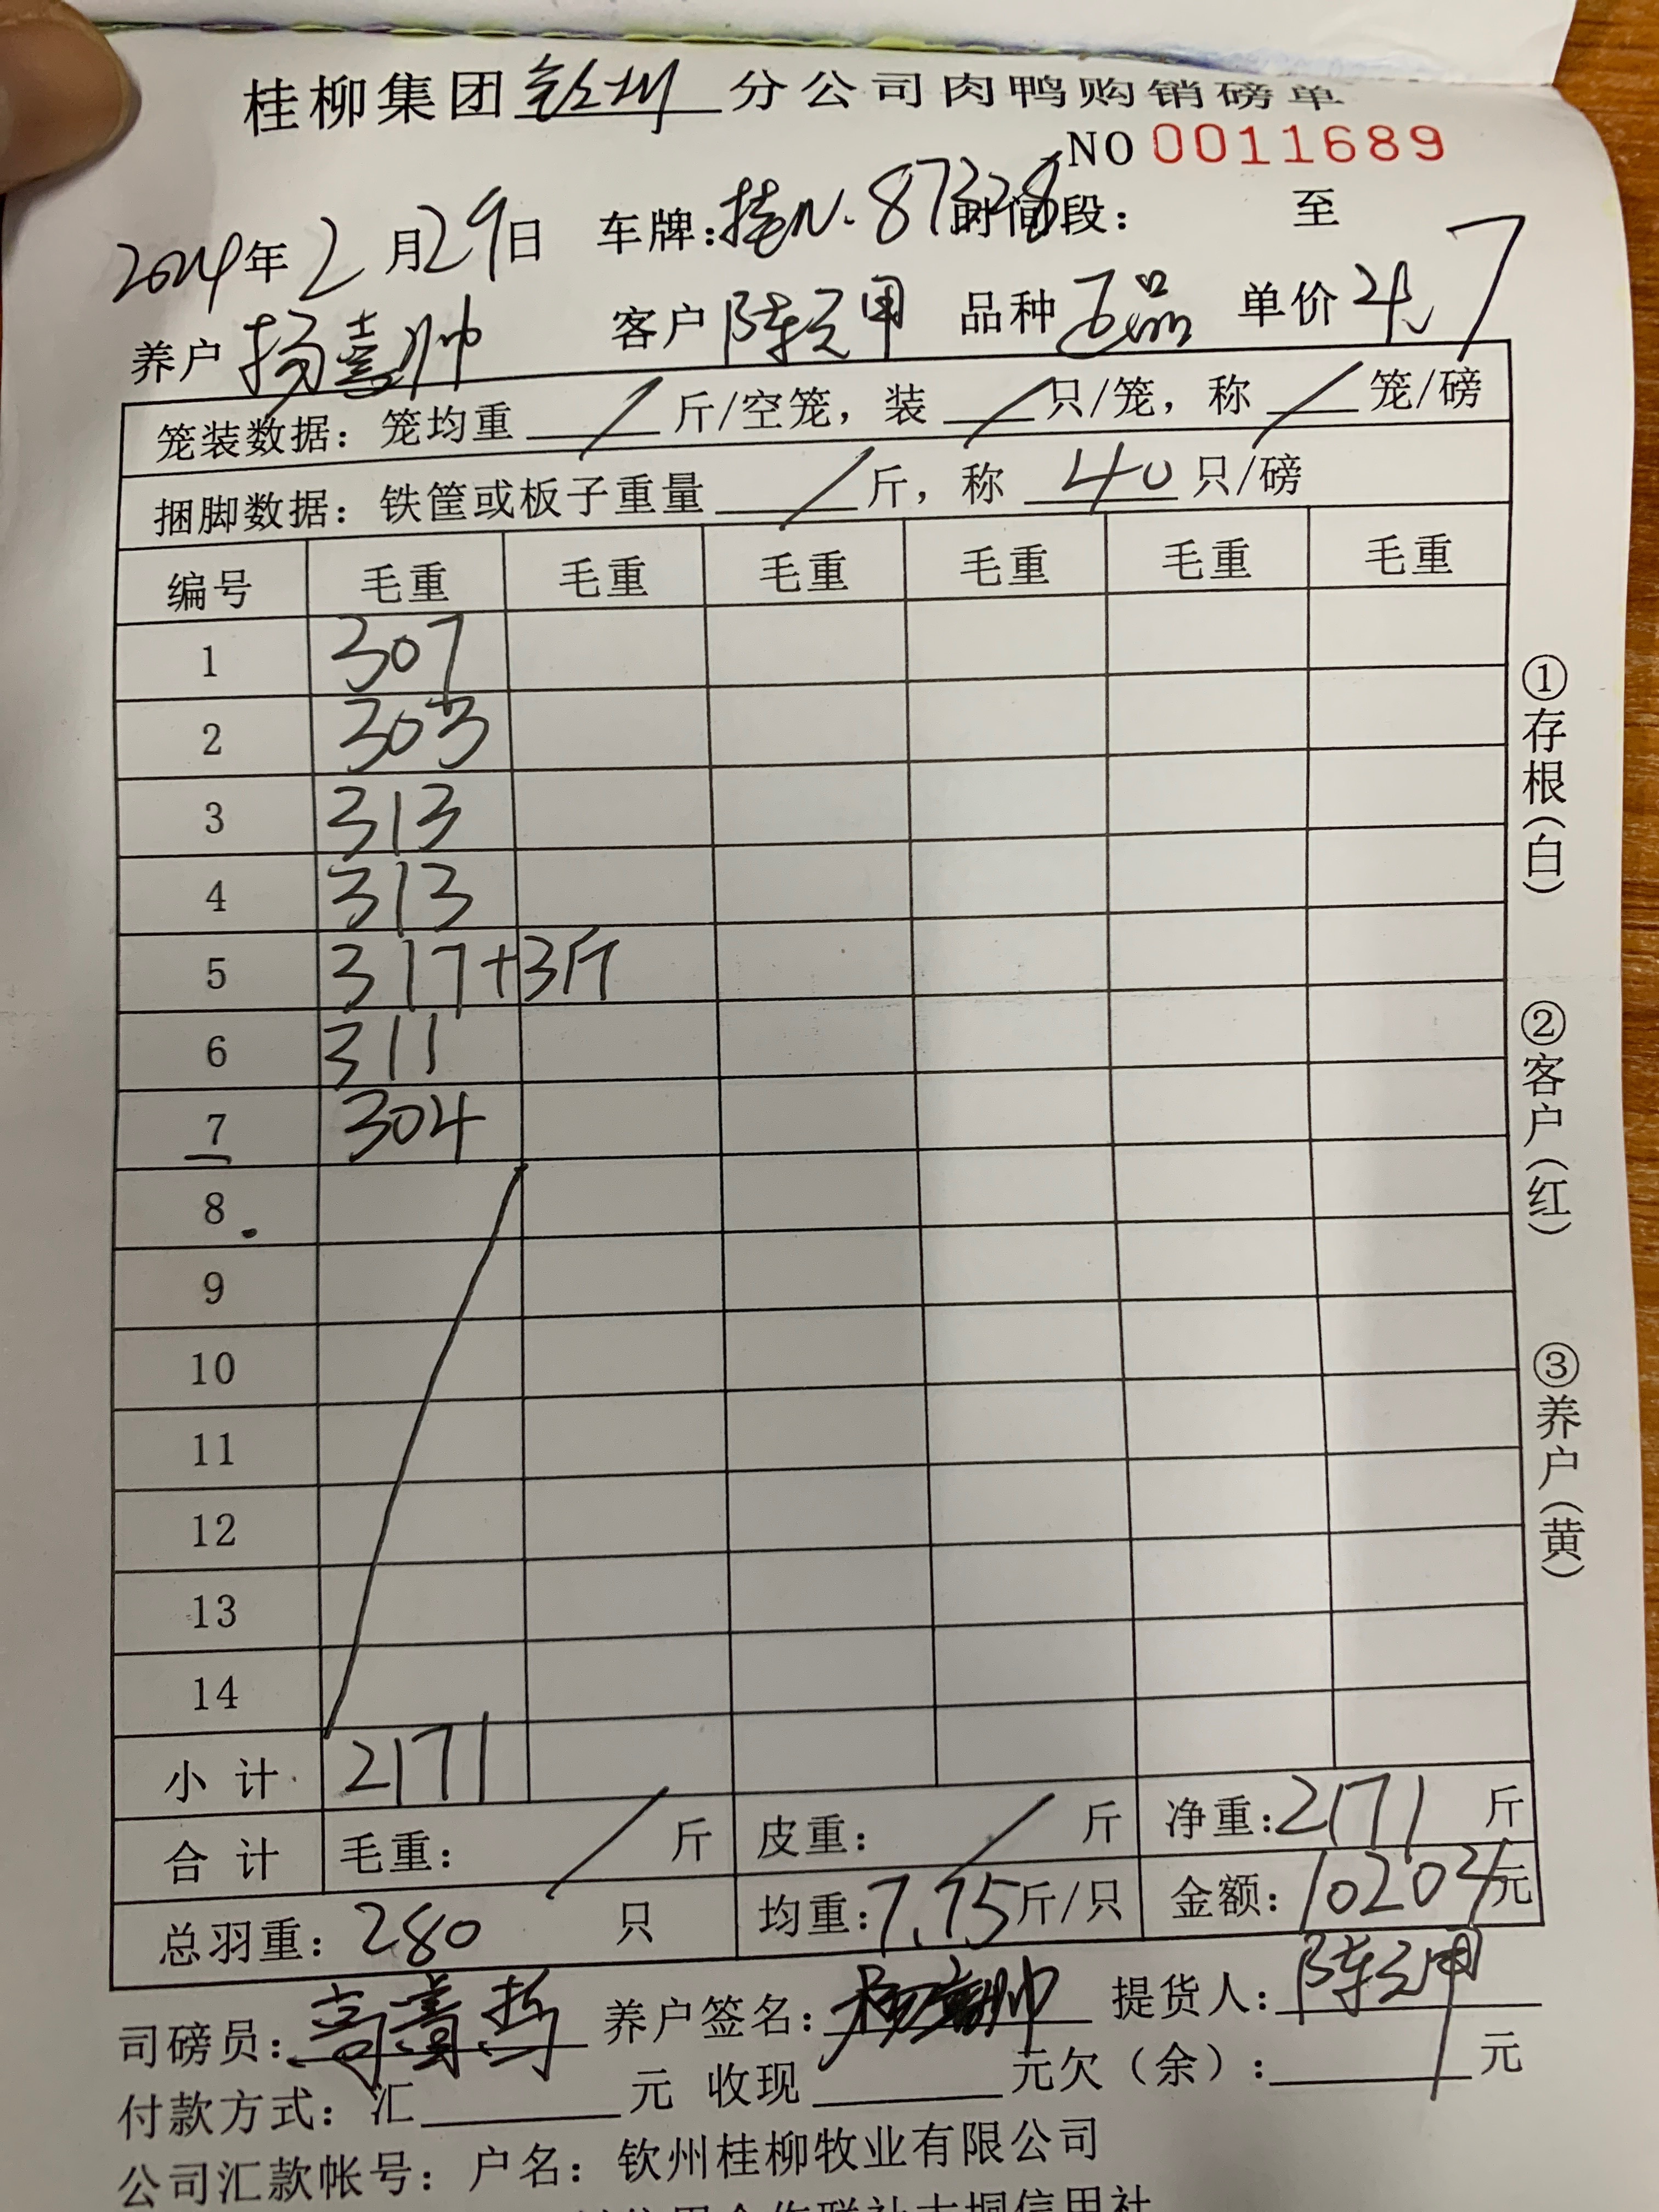 桂柳集团钦州分公司肉鸭购销磅单
NO 0011689
2024年2月29日 车牌:桂N.87328 时间段: 至
养户 杨喜帅 客户 陈元甲 品种 正品 单价 4.7
笼装数据: 笼均重 / 斤/空笼, 装 / 只/笼, 称 / 笼/磅
捆脚数据: 铁筐或板子重量 / 斤, 称 40 只/磅
编号 毛重 毛重 毛重 毛重 毛重 毛重
1 307
2 303
3 313
4 313
5 317+3斤
6 311
7 304
8
9
10
11
12
13
14
小计 2171
合计 毛重: / 斤 皮重: / 斤 净重:2171 斤
总羽重: 280 只 均重:7.75斤/只 金额:10204元
司磅员: 养户签名:杨喜帅 提货人:陈元甲
付款方式: 汇 元 收现 元欠(余): / 元
公司汇款帐号: 户名: 钦州桂柳牧业有限公司
①存根(白)
②客户(红)
③养户(黄)